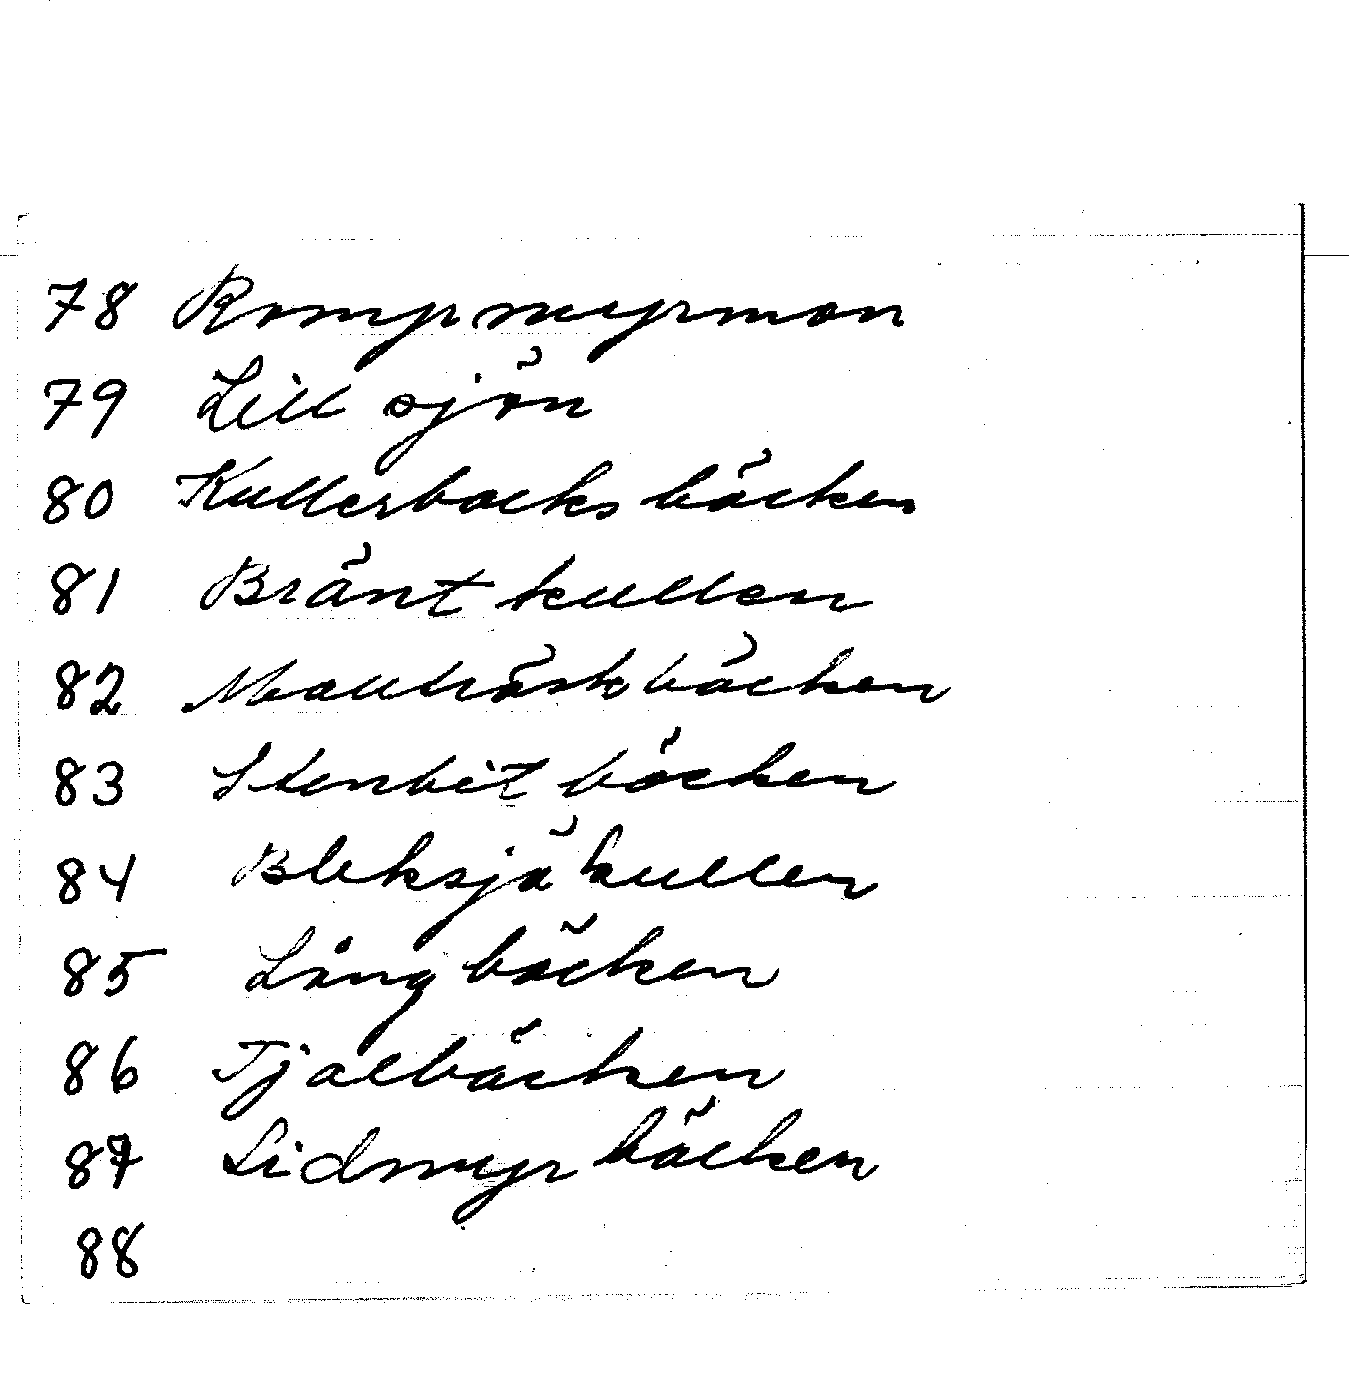 78 Rompmyrmon
79 Lill sjön
80 Kullerbacks bäcken
81 Bränt kullen
82 bäcken
83 Stenbit bäcken
84 Bleksjä kullen
85 Lång bäcken
86 Tjalbäcken
87 Lidmyr bäcken
88